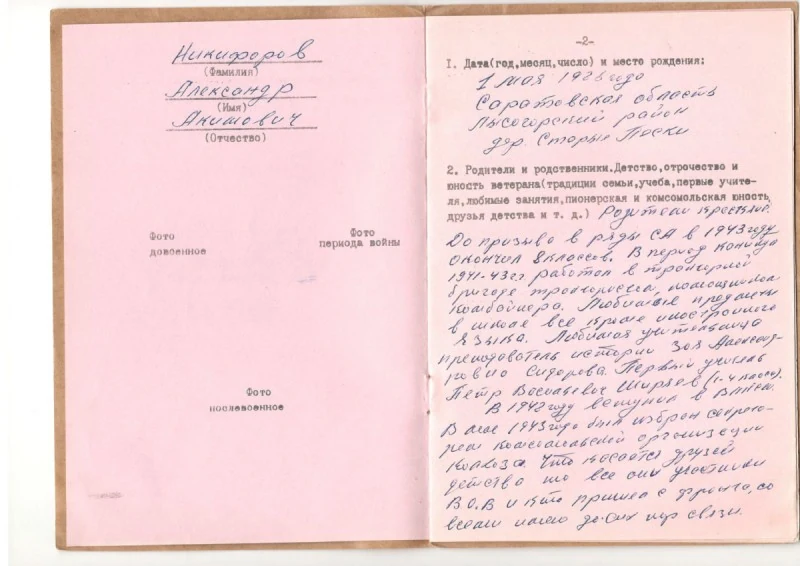 Никифоров
(Фамилия)
Александр
(Имя)
Акимович
(Отчество)
Фото
довоенное
Фото
периода войны
Фото
послевоенное
-2-
I. Дата(год,месяц,число) и место рождения:
1 мая 1926 года
Саратовская область
Лысогорский район
дер. Старые Пески
2. Родители и родственники.Детство,отрочество и
юность ветерана(традиции семьи,учеба,первые учите-
ля,любимые занятия,пионерская и комсомольская юность,
друзья детства и т. д.) Родители крестьяне.
До призыва в ряды СА в 1943 году
окончил 8 классов. В период
1941-43 гг работал в тракторной
бригаде помощником
комбайнера. Любимые предметы
в школе все кроме иностранного
языка. Любимая учительница
преподаватель истории Зоя Александ-
ровна Сидорова. Первый учитель
Петр Васильевич Ширяев (1-4 класс).
В 1942 году вступил в ВЛКСМ.
В мае 1943 года был избран секрета-
рем комсомольской организации
колхоза. Что касается друзей
детства то все они участники
В.О.В и кто пришел с фронта, со
всеми имею до сих пор связи.